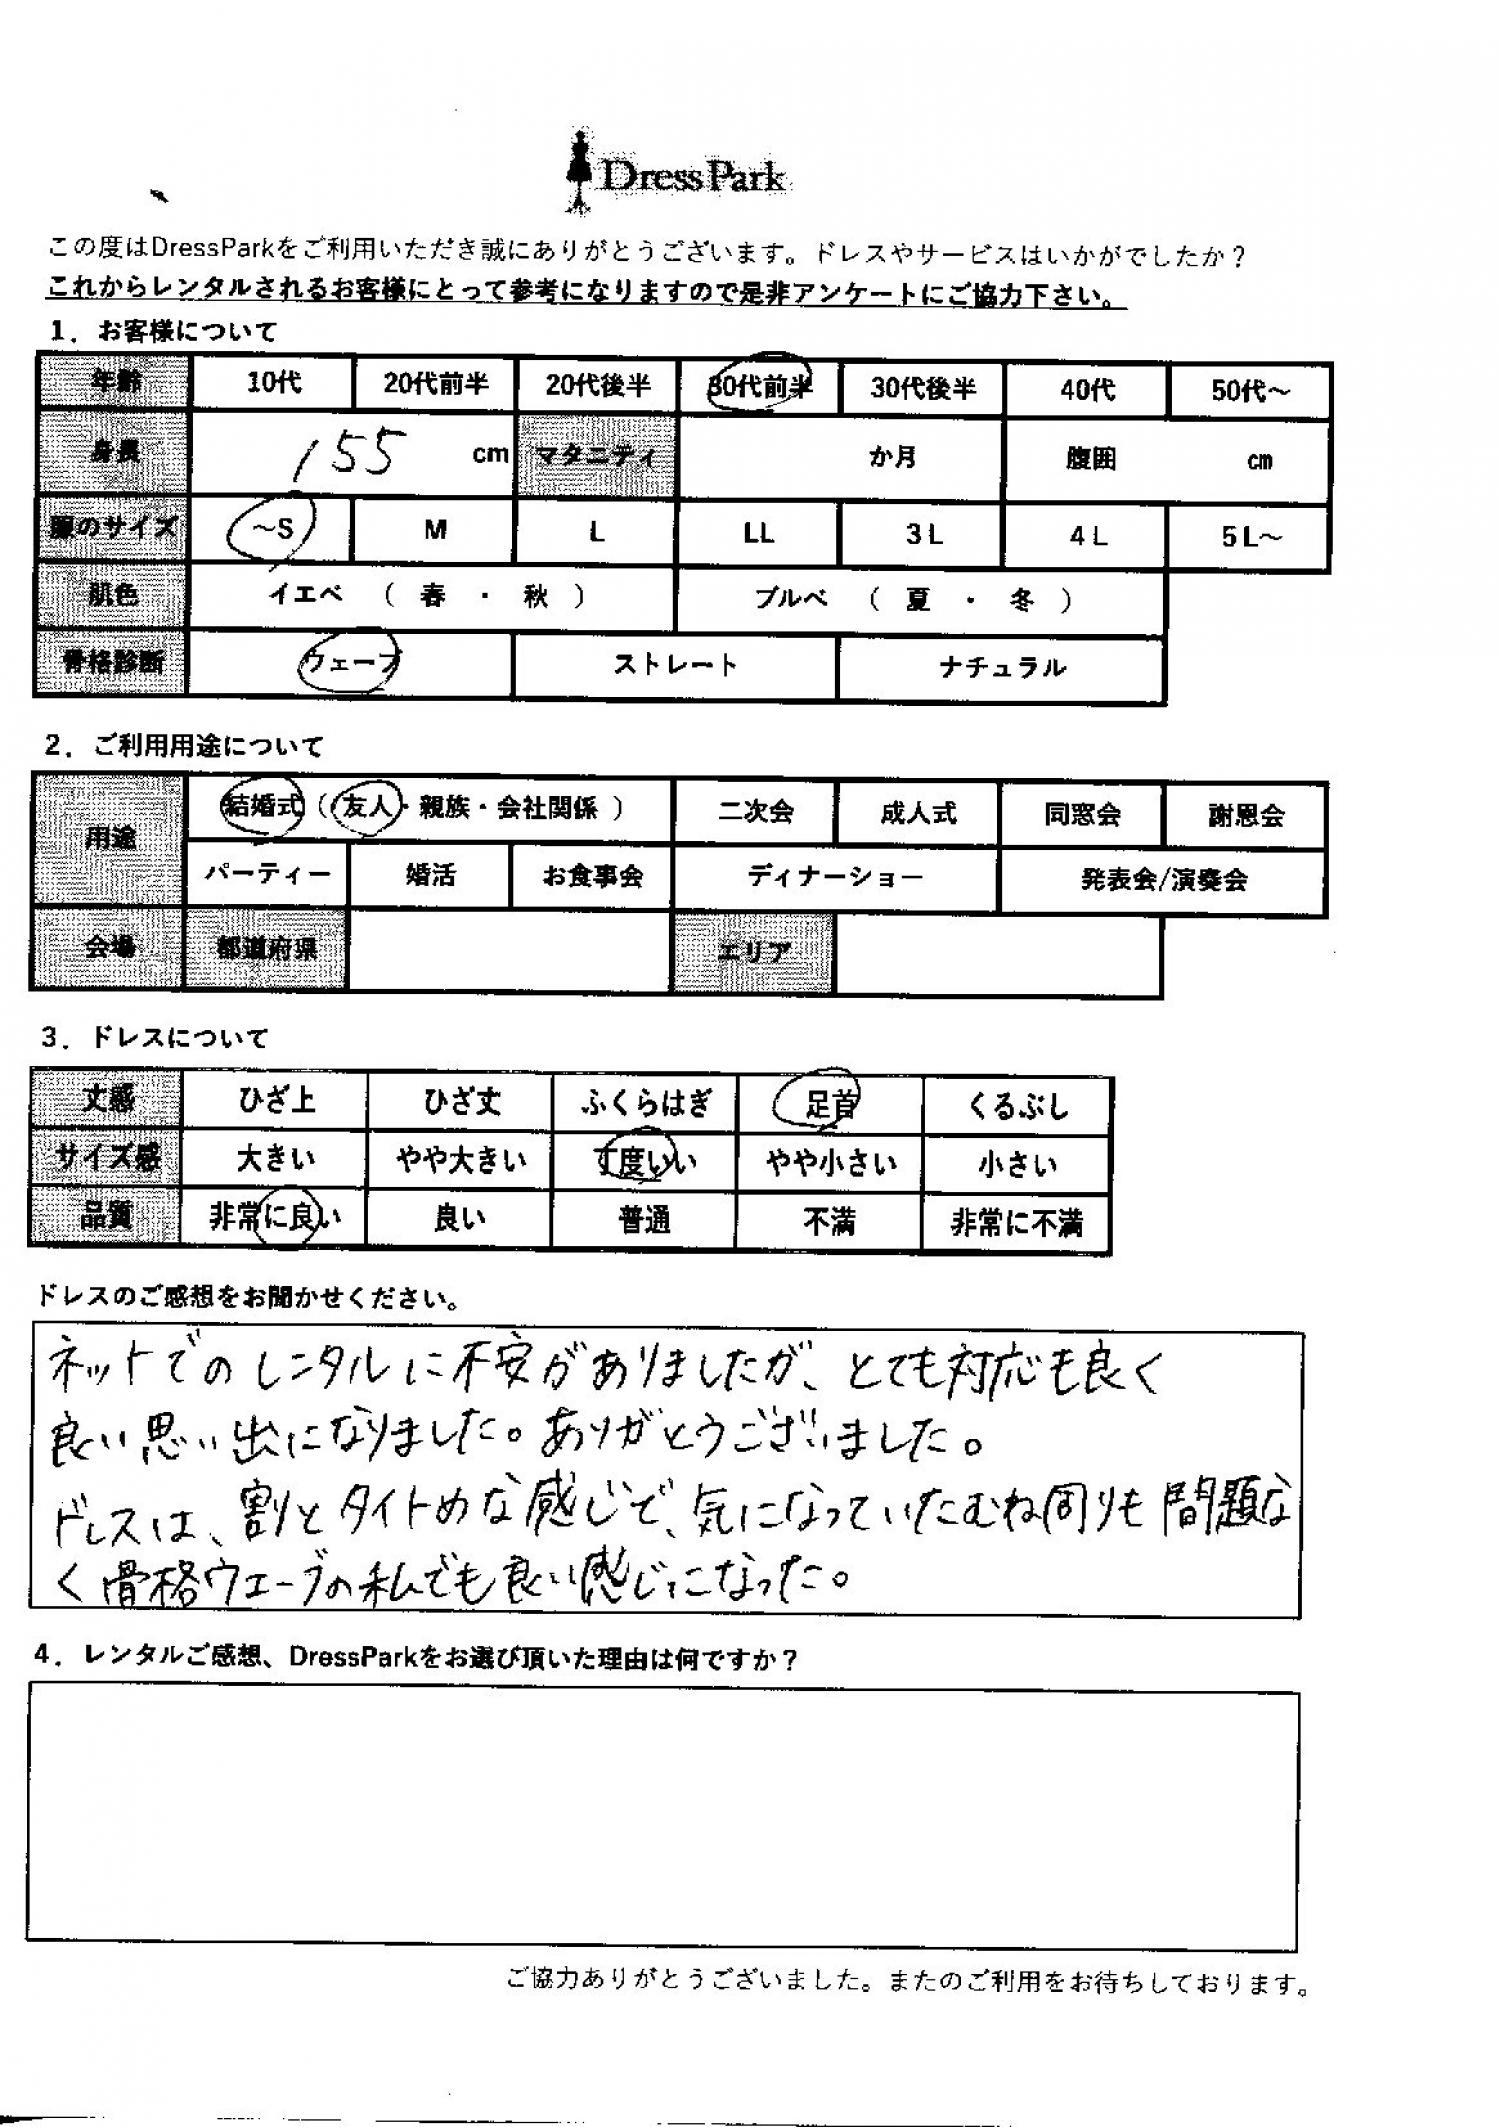 DressPark
この度はDressParkをご利用いただき誠にありがとうございます。ドレスやサービスはいかがでしたか？
これからレンタルされるお客様にとって参考になりますので是非アンケートにご協力下さい。
1．お客様について
年齢 10代 20代前半 20代後半 30代前半 30代後半 40代 50代～
身長 155 cm マタニティ か月 腹囲 cm
服のサイズ ～S M L LL 3L 4L 5L～
肌色 イエベ （ 春 ・ 秋 ） ブルベ （ 夏 ・ 冬 ）
骨格診断 ウェーブ ストレート ナチュラル
2．ご利用用途について
用途 結婚式（友人・親族・会社関係） 二次会 成人式 同窓会 謝恩会
パーティー 婚活 お食事会 ディナーショー 発表会/演奏会
会場 都道府県 エリア
3．ドレスについて
丈感 ひざ上 ひざ丈 ふくらはぎ 足首 くるぶし
サイズ感 大きい やや大きい 丁度いい やや小さい 小さい
品質 非常に良い 良い 普通 不満 非常に不満
ドレスのご感想をお聞かせください。
ネットでのレンタルに不安がありましたが、とても対応も良く
良い思い出になりました。ありがとうございました。
ドレスは、割とタイトめな感じで、気になっていたむね周りも問題な
く骨格ウェーブの私でも良い感じになった。
4．レンタルご感想、DressParkをお選び頂いた理由は何ですか？
ご協力ありがとうございました。またのご利用をお待ちしております。